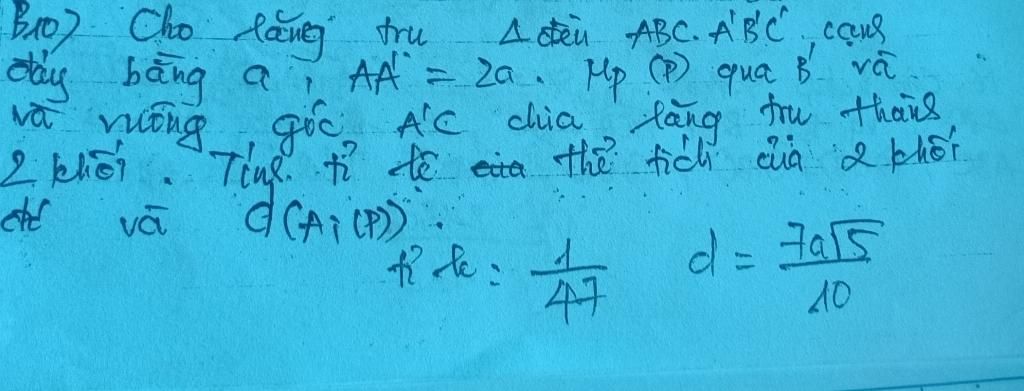 B10) Cho lăng trụ Δ đều ABC.A'B'C', cạnh
đáy bằng a, AA' = 2a. Mp (P) qua B' và
và vuông góc A'C chia lăng trụ thành
2 khối. Tính tỉ lệ thể tích của 2 khối
và d(A; (P)).
tỉ lệ: 1/47 d = 7a√5/10